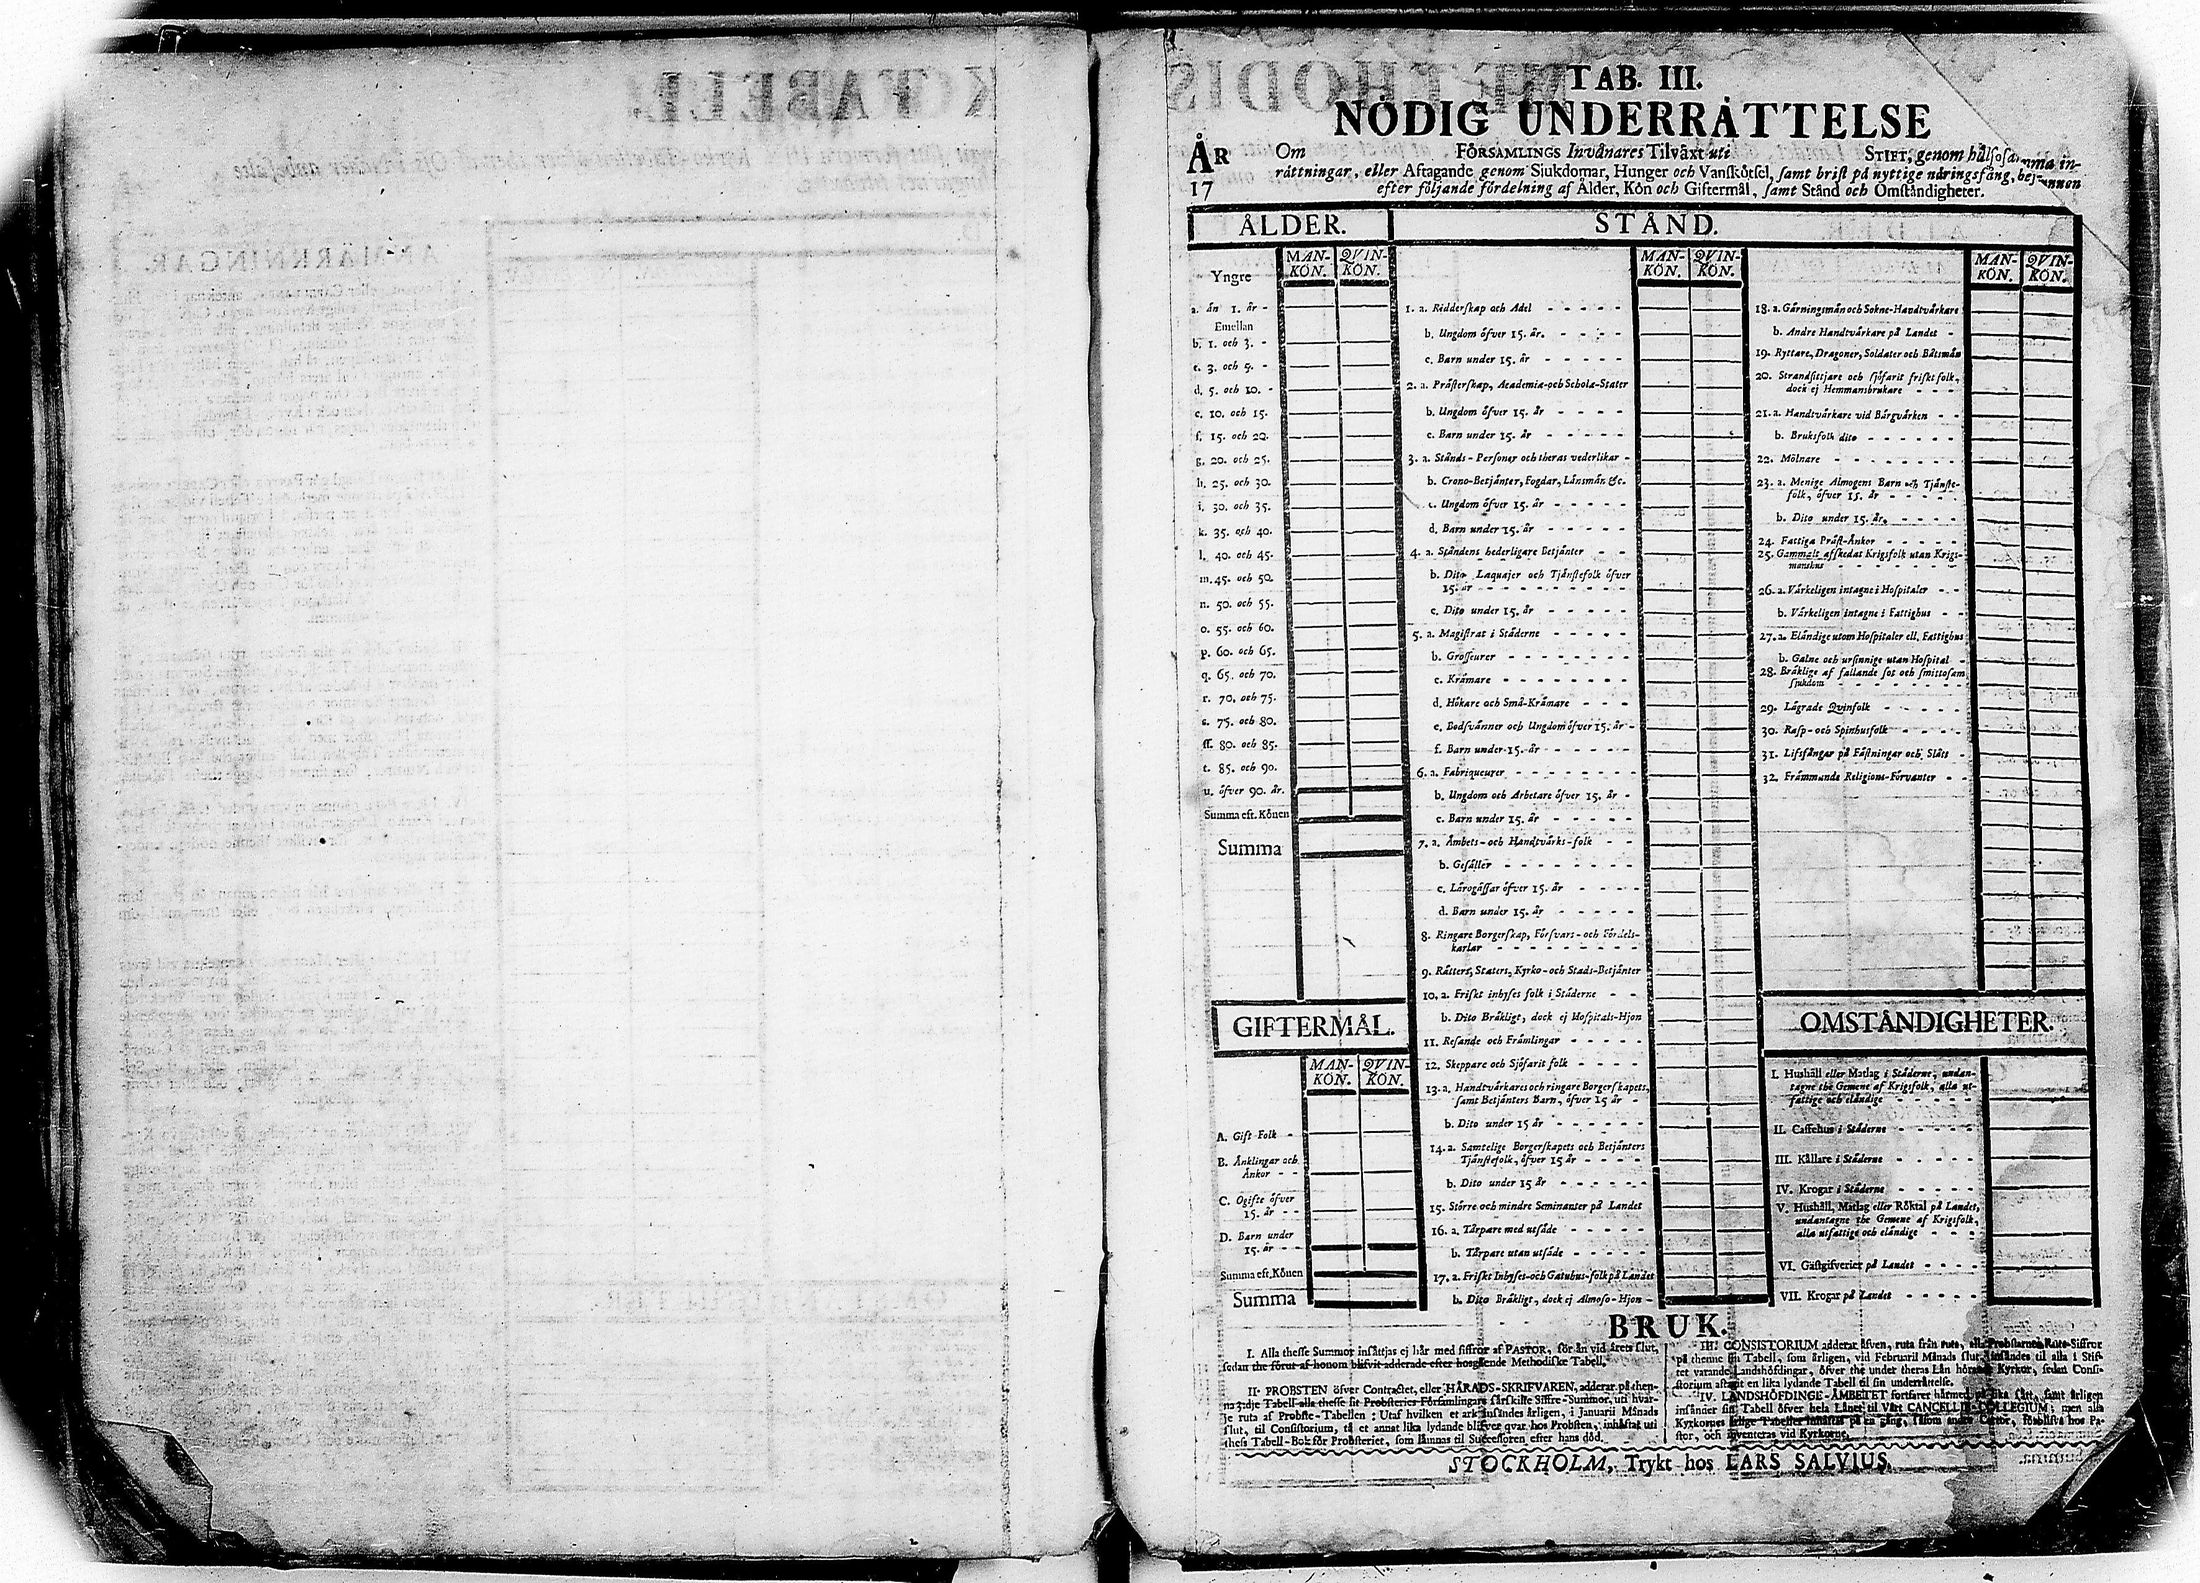 TAB. III.
NÖDIG UNDERRÅTTELSE
ÅR
17
Om FÖRSAMLINGS Invånares Tilväxt uti STIFT, genom hålsosamma in-
råttningar, eller Aftagande genom Sjukdomar, Hunger och Vanskötsel, samt brist på nyttige näringsfång, befunnen
efter följande fördelning af Ålder, Kön och Giftermål, samt Stånd och Omståndigheter.
ÅLDER.
MAN-KÖN. QVIN-KÖN.
Yngre
a. än 1. år -
Emellan
b. 1. och 3. -
c. 3. och 5. -
d. 5. och 10. -
e. 10. och 15.
f. 15. och 20.
g. 20. och 25.
h. 25. och 30.
i. 30. och 35.
k. 35. och 40.
l. 40. och 45.
m. 45. och 50.
n. 50. och 55.
o. 55. och 60.
p. 60. och 65.
q. 65. och 70.
r. 70. och 75.
s. 75. och 80.
ff. 80. och 85.
t. 85. och 90.
u. öfver 90. år.
Summa eft. Könen
Summa
GIFTERMÅL.
MAN-KÖN. QVIN-KÖN.
A. Gift Folk -
B. Ånklingar och
Ånkor - -
C. Ogifte öfver
15. år - -
D. Barn under
15. år - -
Summa eft. Könen
Summa
STÅND.
MAN-KÖN. QVIN-KÖN.
1. a. Ridderskap och Adel
b. Ungdom öfver 15. år.
c. Barn under 15. år
2. a. Pråsterskap, Academiæ-och Scholæ-Stater
b. Ungdom öfver 15. år
c. Barn under 15. år
3. a. Stånds-Personer och theras vederlikar -
b. Crono-Betjänter, Fogdar, Länsmän &c.
c. Ungdom öfver 15. år
d. Barn under 15. år
4. a. Ståndens hederligare Betjänter
b. Dito Laquajer och Tjänstefolk öfver
15. år
c. Dito under 15. år
5. a. Magistrat i Städerne
b. Grosseurer
c. Krämare
d. Hökare och Små-Krämare
e. Bodsvänner och Ungdom öfver 15. år -
f. Barn under 15. år
6. a. Fabriqueurer
b. Ungdom och Arbetare öfver 15. år -
c. Barn under 15. år
7. a. Åmbets-och Handtvärks-folk
b. Gesäller
c. Lärogässar öfver 15. år
d. Barn under 15. år
8. Ringare Borgerskap, Försvars-och Fördels-
karlar
9. Råtters, Staters, Kyrko-och Stads-Betjänter
10. a. Friskt inhyses folk i Städerne
b. Dito Bräkligt, dock ej Hospitals-Hjon
11. Resande och Främlingar
12. Skeppare och Sjöfarit folk
13. a. Handtvärkares och ringare Borgerskapets,
samt Betjänters Barn, öfver 15 år -
b. Dito under 15 år
14. a. Samtelige Borgerskapets och Betjänters
Tjänstefolk, öfver 15 år
b. Dito under 15 år
15. Större och mindre Seminanter på Landet
16. a. Tårpare med utsäde
b. Tårpare utan utsäde
17. a. Friskt Inhyses-och Gatuhus-folk på Landet
b. Dito Bräkligt, dock ej Almoso-Hjon -
MAN-KÖN. QVIN-KÖN.
18. a. Gärningsmän och Sokne-Handtvärkare
b. Andre Handtvärkare på Landet -
19. Ryttare, Dragoner, Soldater och Båtsmän
20. Strandsittjare och sjöfarit friskt folk,
dock ej Hemmansbrukare
21. a. Handtvärkare vid Bärgvärken
b. Bruksfolk dito
22. Mölnare
23. a. Menige Almogens Barn och Tjänste-
folk, öfver 15. år
b. Dito under 15. år.
24. Fattiga Präst-Änkor
25. Gammalt afskedat Krigsfolk utan Krigs-
manshus
26. a. Värkeligen intagne i Hospitaler
b. Värkeligen intagne i Fattighus
27. a. Eländige utom Hospitaler ell. Fattighus
b. Galne och ursinnige utan Hospital -
28. Bräklige af fallande sot och smittosam
sjukdom
29. Lägrade Qvinfolk
30. Rasp-och Spinhusfolk
31. Lifsfångar på Fästningar och Slått
32. Främmande Religions-Förvanter
OMSTÅNDIGHETER.
I. Hushåll eller Matlag i Städerne, undan-
tagne the Gemene af Krigsfolk, alla ut-
fattige och eländige
II. Caffehus i Städerne
III. Källare i Städerne
IV. Krogar i Städerne
V. Hushåll, Matlag eller Röktal på Landet,
undantagne the Gemene af Krigsfolk,
alla utfattige och eländige
VI. Gästgifverier på Landet
VII. Krogar på Landet
BRUK.
I. Alla thesse Summor insättjas ej här med siffror af PASTOR, för än vid årets slut,
sedan the förut af honom blifvit adderade efter hosgående Methodiske Tabell.
II. PROBSTEN öfver Contractet, eller HÄRADS-SKRIFVAREN, adderar på then-
na 3:dje Tabell alla thesse sit Probsteries Församlingars särskilte Siffre-Summor, uti hvar-
je ruta af Probste-Tabellen: Utaf hvilken et ark insändes årligen, i Januarii Månads
slut, til Consistorium, tå et annat lika lydande blifver qvar hos Probsten, inhäftat uti
thess Tabell-Bok för Probsteriet, som lämnas til Successoren efter hans död.
III. CONSISTORIUM adderar åfven, ruta från ruta, alla Probstarnes Rute-Siffror
på thenne sin Tabell, som årligen, vid Februarii Månads slut, insändes til alla i Stif-
tet varande Landshöfdingar, öfver the under theras Län hörande Kyrkor, sedan Consi-
storium aftagit en lika lydande Tabell til sin underrättelse.
IV. LANDSHÖFDINGE-ÄMBETET fortfarer härmed på lika sätt, samt årligen
insänder sin Tabell öfver hela Länet til Vårt CANCELLIE-COLLEGIUM; men alla
Kyrkornes årlige Tabeller inhäftas på en gång, såsom andre Cartor, förblifva hos Pa-
stor, och inventeras vid Kyrkorne.
STOCKHOLM, Trykt hos LARS SALVIUS.